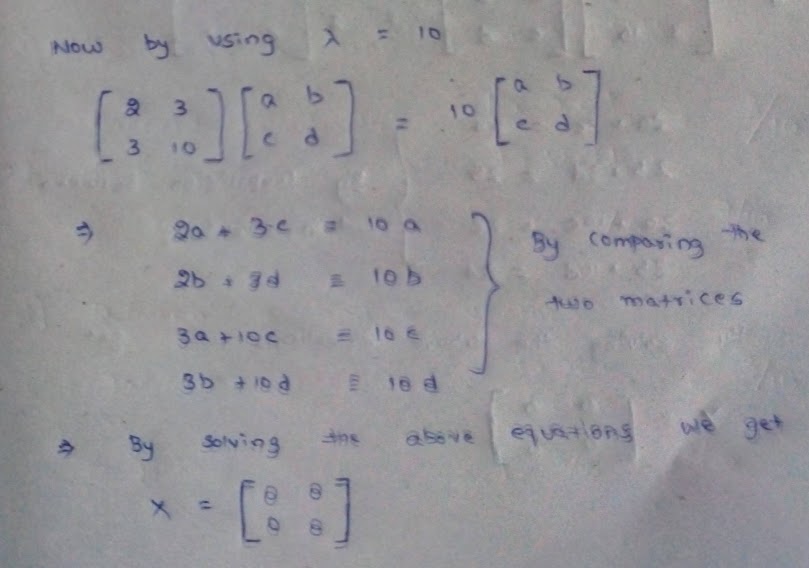 Now by using λ = 10
[ 2 3 ; 3 10 ] [ a b ; c d ] = 10 [ a b ; c d ]
⇒ 2a + 3c = 10 a
2b + 3d = 10b
3a + 10c = 10 c
3b + 10d = 10 d
} By comparing the
two matrices
⇒ By solving the above equations we get
X = [ 0 0 ; 0 0 ]